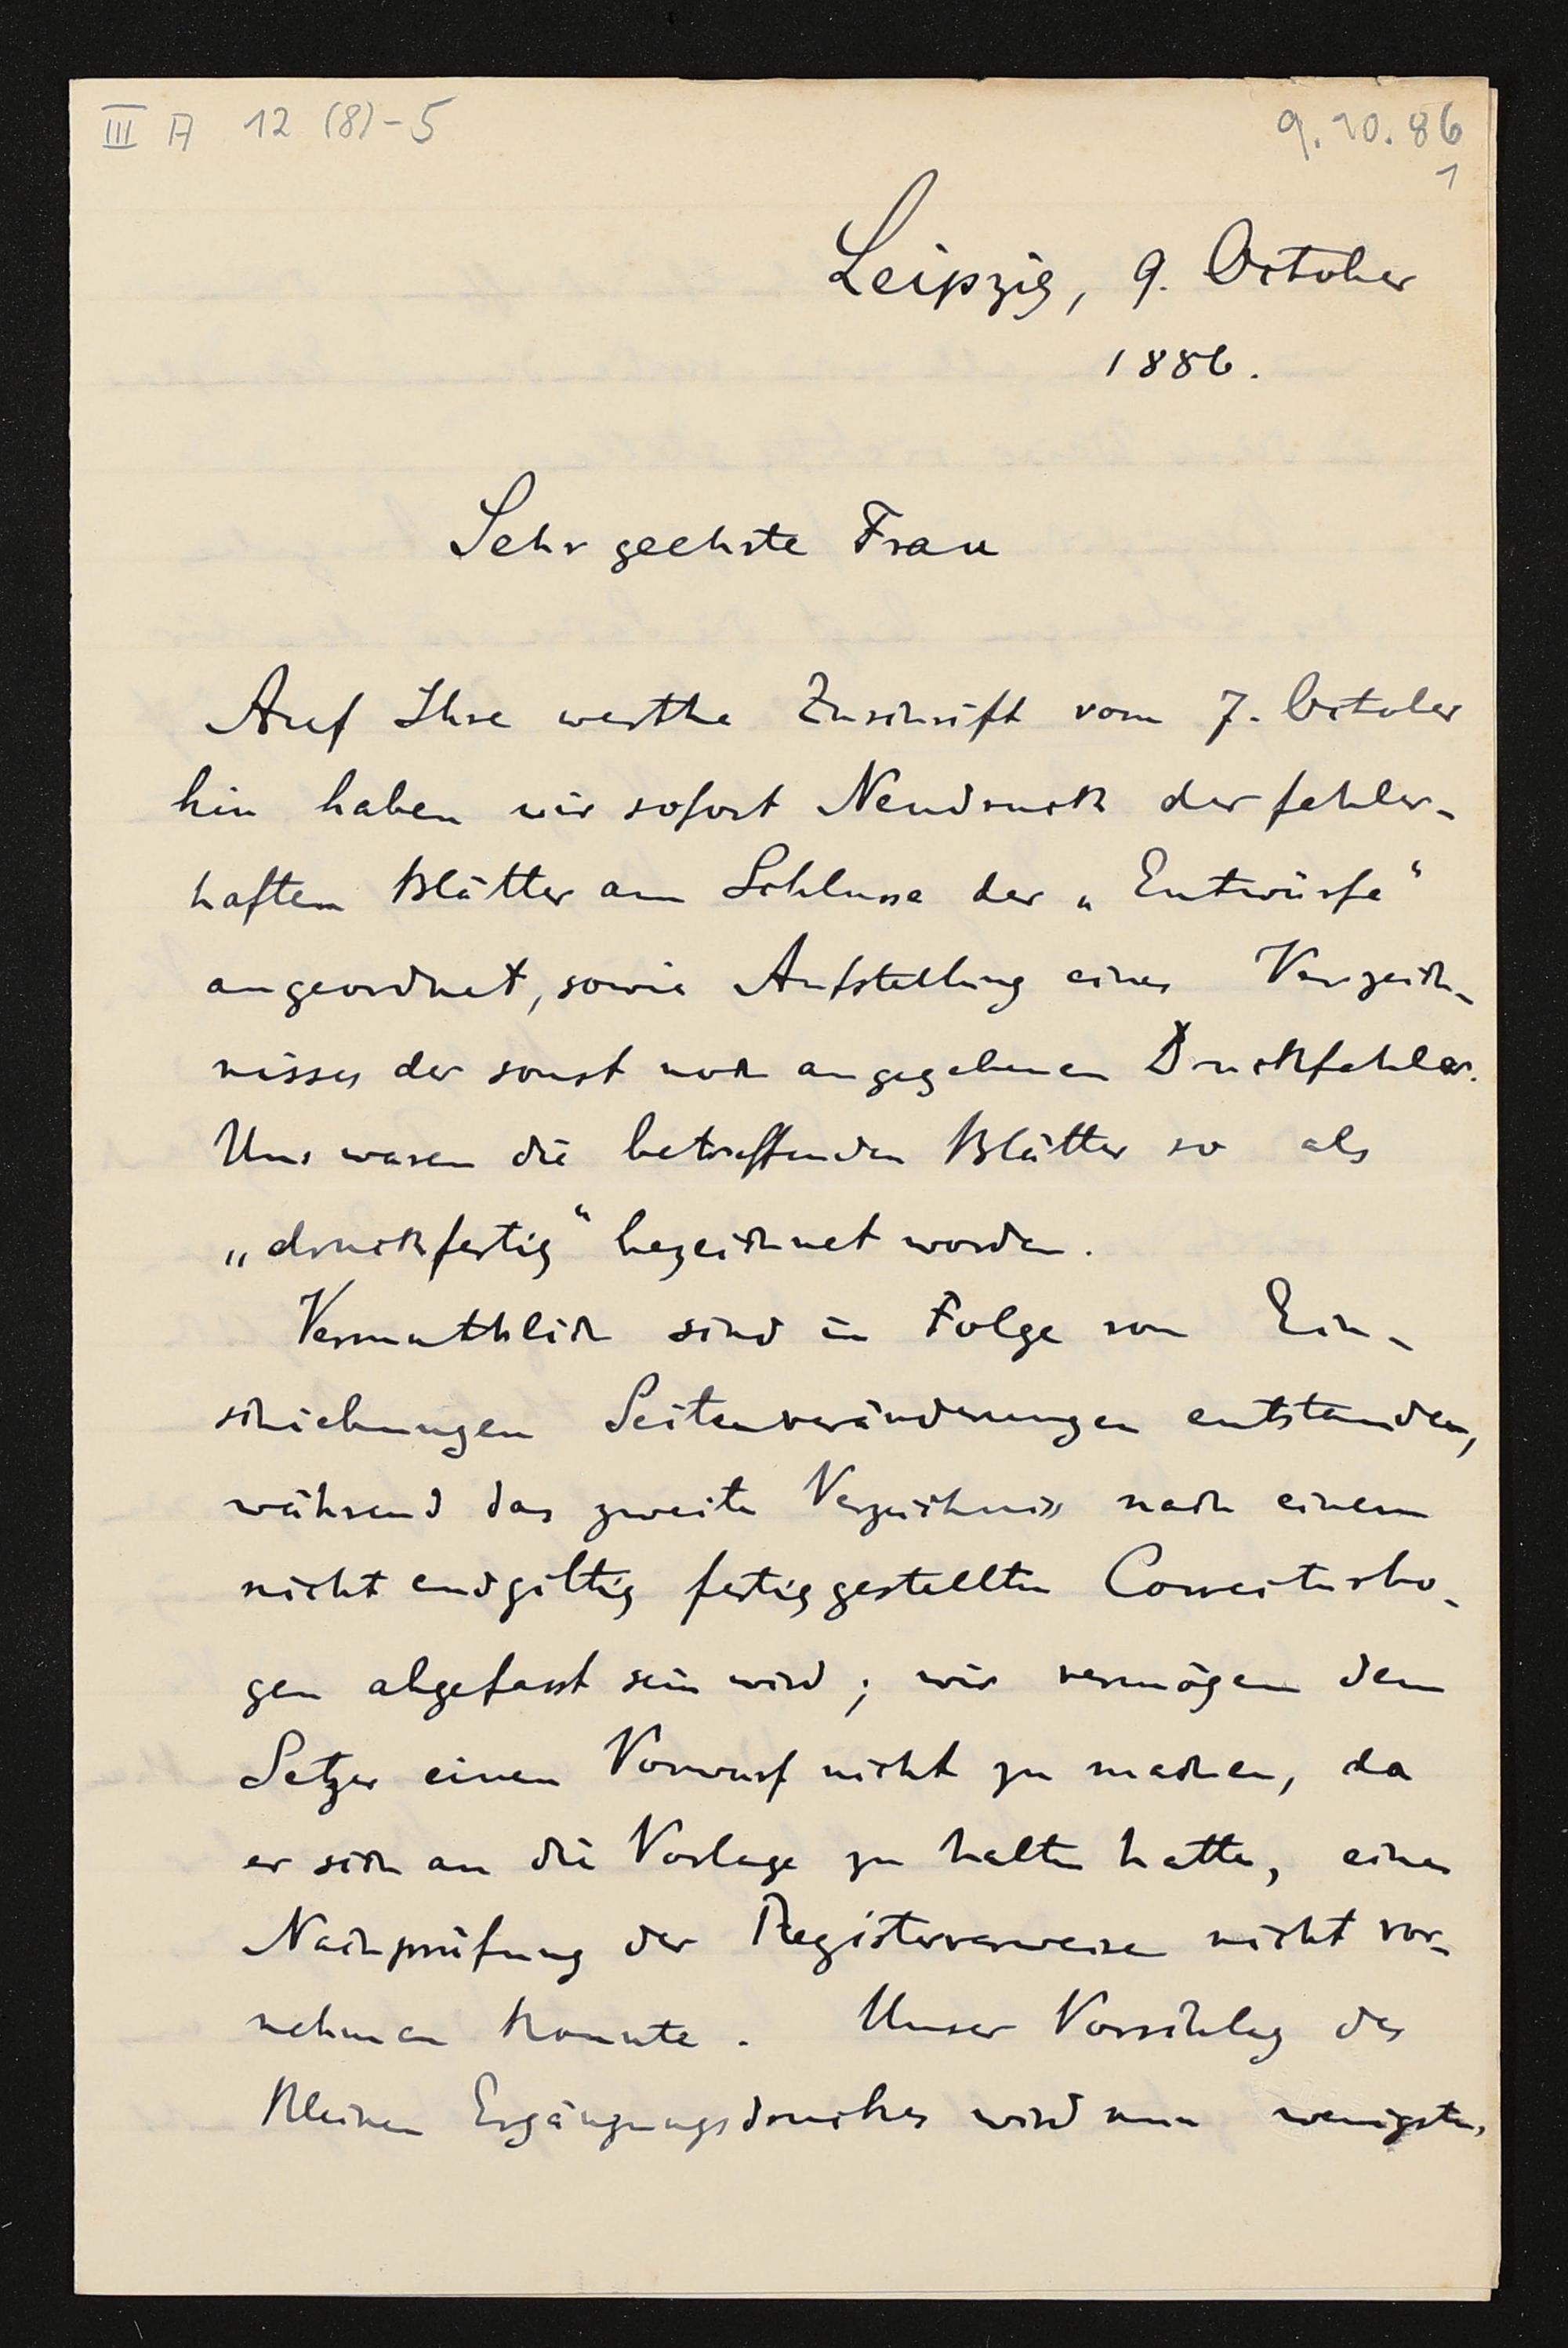 III A 12 (8)-5
9.10.86
1
Leipzig, 9. October
1886.
Sehr geehrte Frau
Auf Ihre werthe Zuschrift vom 7. October
hin haben wir sofort Neudruck der fehler-
haften Blätter am Schlusse der „Entwürfe“
angeordnet, sowie Aufstellung eines Verzeich-
nisses der sonst noch angegebenen Druckfehler.
Uns waren die betreffenden Blätter so als
„druckfertig“ bezeichnet worden.
Vermuthlich sind in Folge von Ein-
schiebungen Seitenveränderungen entstanden,
während das zweite Verzeichniss nach einem
nicht endgiltig fertiggestellten Correcturbo-
gen abgefasst sein wird; wir vermögen dem
Setzer einen Vorwurf nicht zu machen, da
er sich an die Vorlage zu halten hatte, eine
Nachprüfung der Registerverweise nicht vor-
nehmen konnte. Unser Vorschlag des
kleinen Ergänzungsdruckes wird nun wenigstens